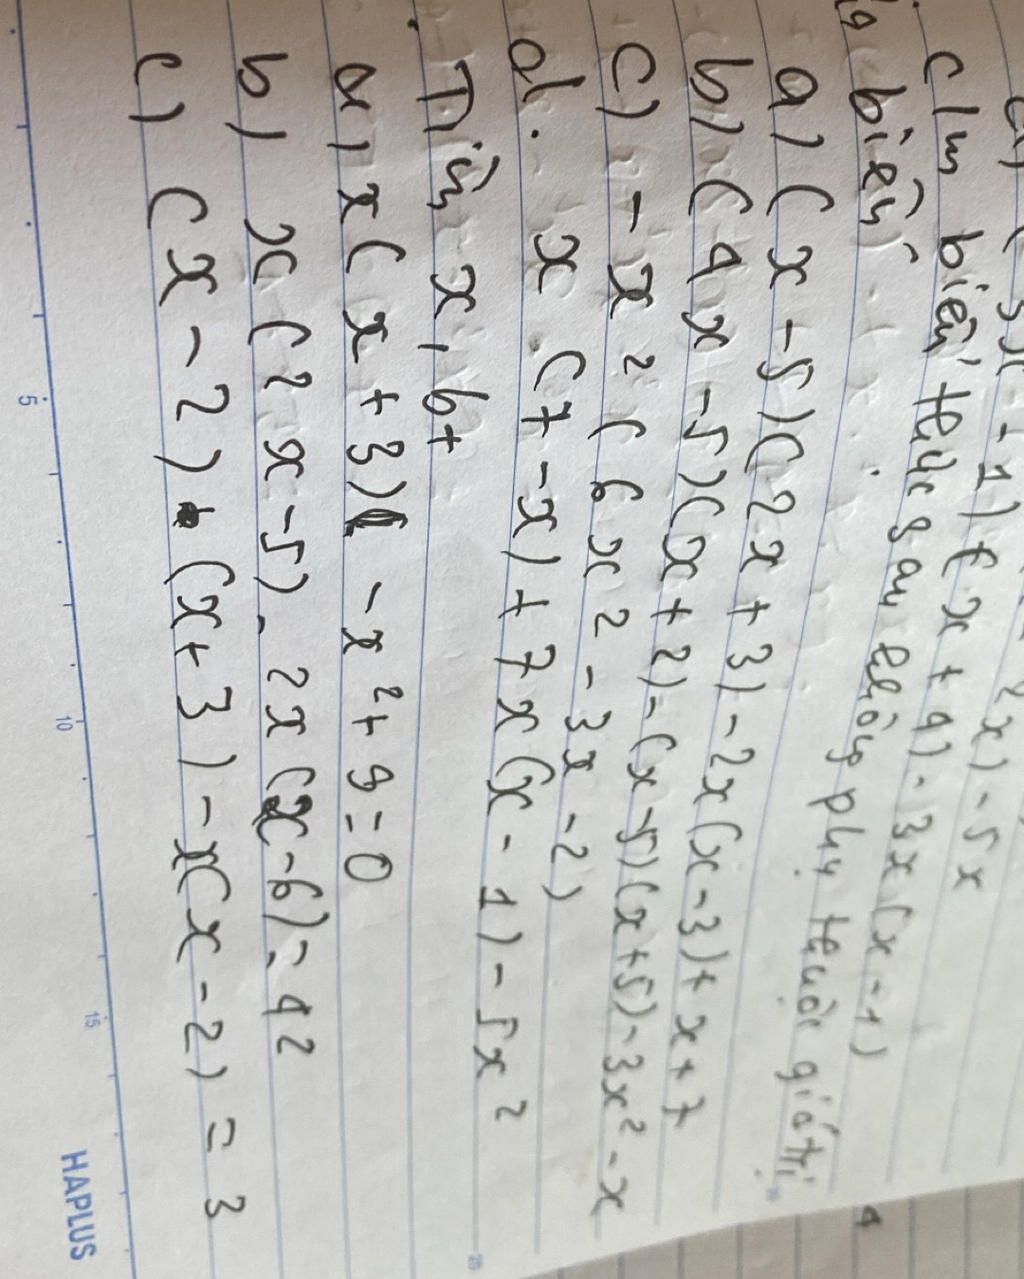 (x + 4) - 3x (x - 1)
c/m biển thức sau không phụ thuộc giá trị
biến
a) (x - 5)(2x + 3) - 2x(x - 3) + x + 7
b) (4x - 5)(x + 2) - (x - 5)(x + 5) - 3x² - x
c) - x² (6x² - 3x - 2)
d. x (7 - x) + 7x (x - 1) - 5x²
Tìm x, bt
a) x (x + 3) - x² + 9 = 0
b) x (2x - 5) - 2x (x - 6) = 42
c) (x - 2) . (x + 3) - x(x - 2) = 3
5
10
15
HAPLUS